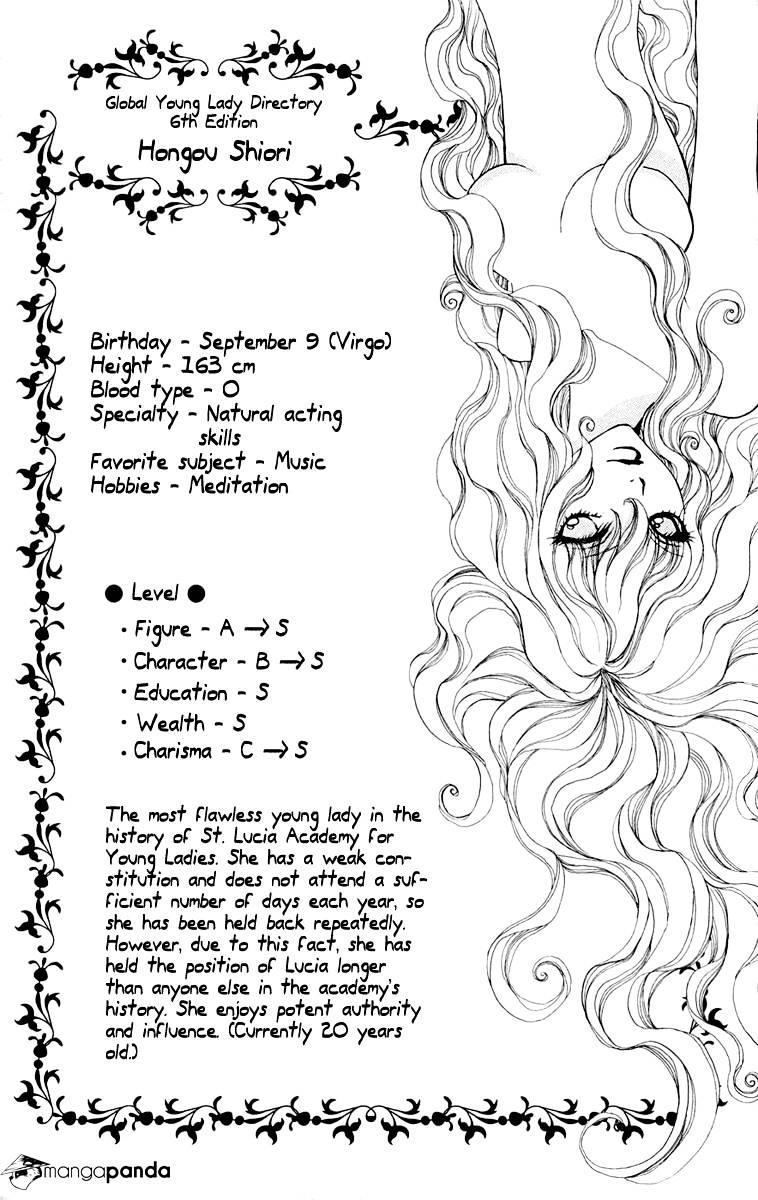 Global Young Lady Directory
6th Edition
Hongou Shiori
Birthday - September 9 (Virgo)
Height - 163 cm
Blood type - O
Specialty - Natural acting
skills
Favorite subject - Music
Hobbies - Meditation
● Level ●
• Figure - A → S
• Character - B → S
• Education - S
• Wealth - S
• Charisma - C → S
The most flawless young lady in the
history of St. Lucia Academy for
Young Ladies. She has a weak con-
stitution and does not attend a suf-
ficient number of days each year, so
she has been held back repeatedly.
However, due to this fact, she has
held the position of Lucia longer
than anyone else in the academy's
history. She enjoys potent authority
and influence. (Currently 20 years
old.)
mangapanda